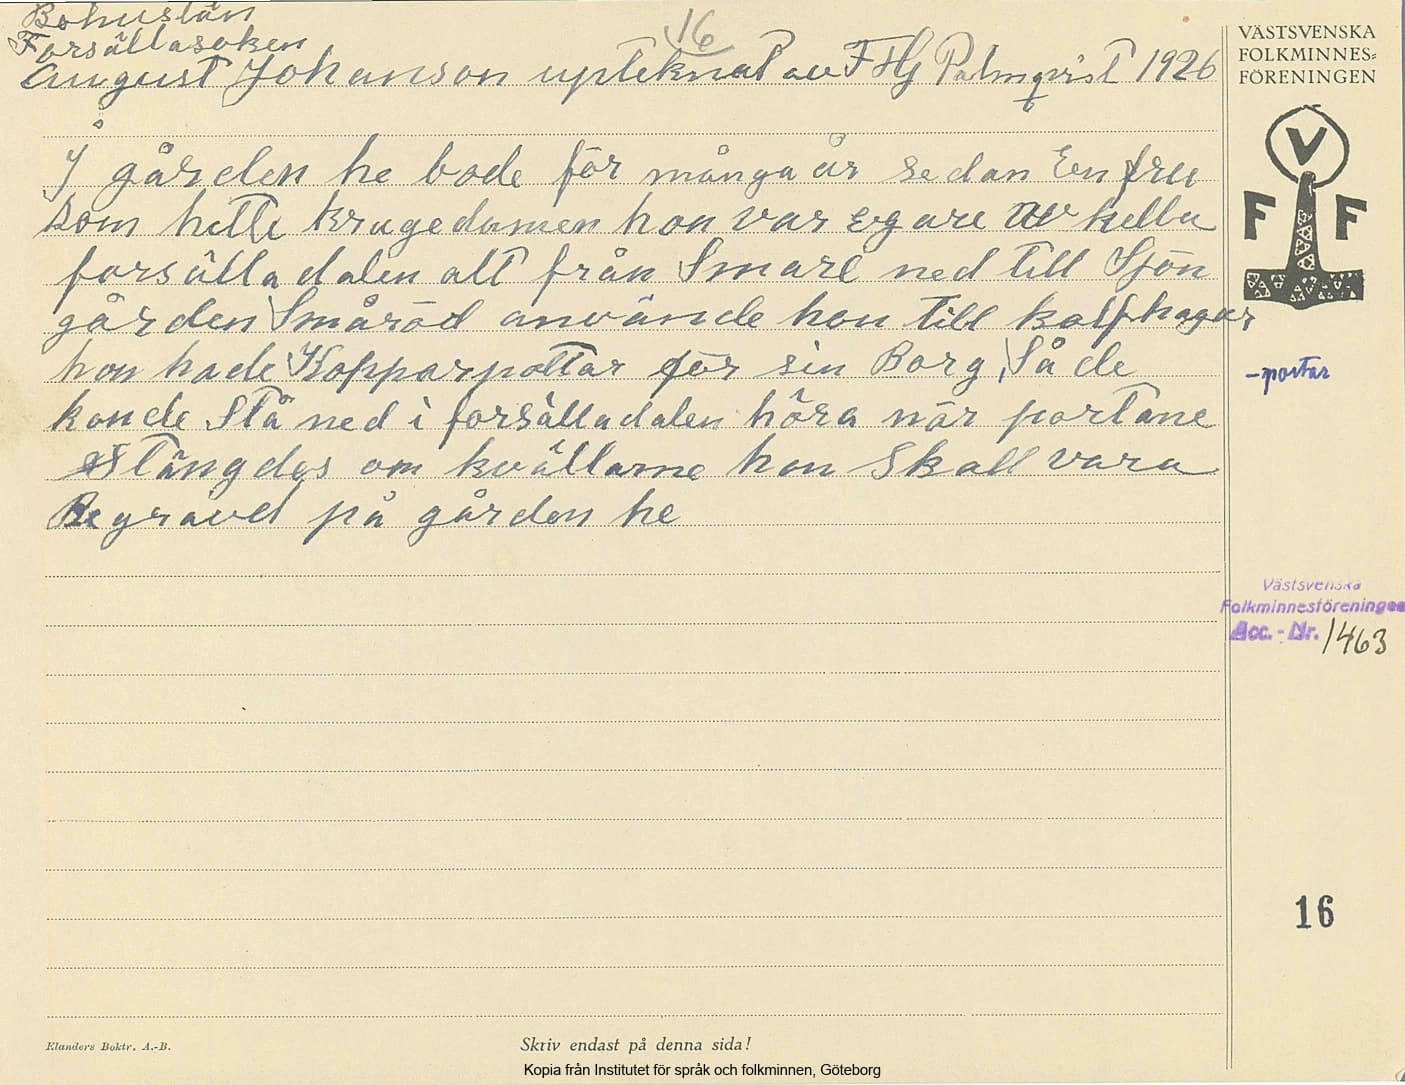 Bohuslän
Forsällasoken
16
August Johanson upteknat av F HG Palmqvist 1926
I gården he bode för många år sedan Een fru
som hette Krugedamen hon var egare av hella
forsälla dalen alt från Smarl ned till Sjön
gården Småröd använde hon till kalfhagar
hon hade Kopparpottar för sin Borg, Så de
konde Stå ned i forsälladalen höra när portane
Stängdes om kvällarne hon Skall vara
Begravd på gården he
VÄSTSVENSKA
FOLKMINNES=
FÖRENINGEN
V
F F
-portar
Västsvenska
Folkminnesföreningen
Acc. - Nr. 1463
16
Elanders Boktr. A.-B.
Skriv endast på denna sida!
Kopia från Institutet för språk och folkminnen, Göteborg